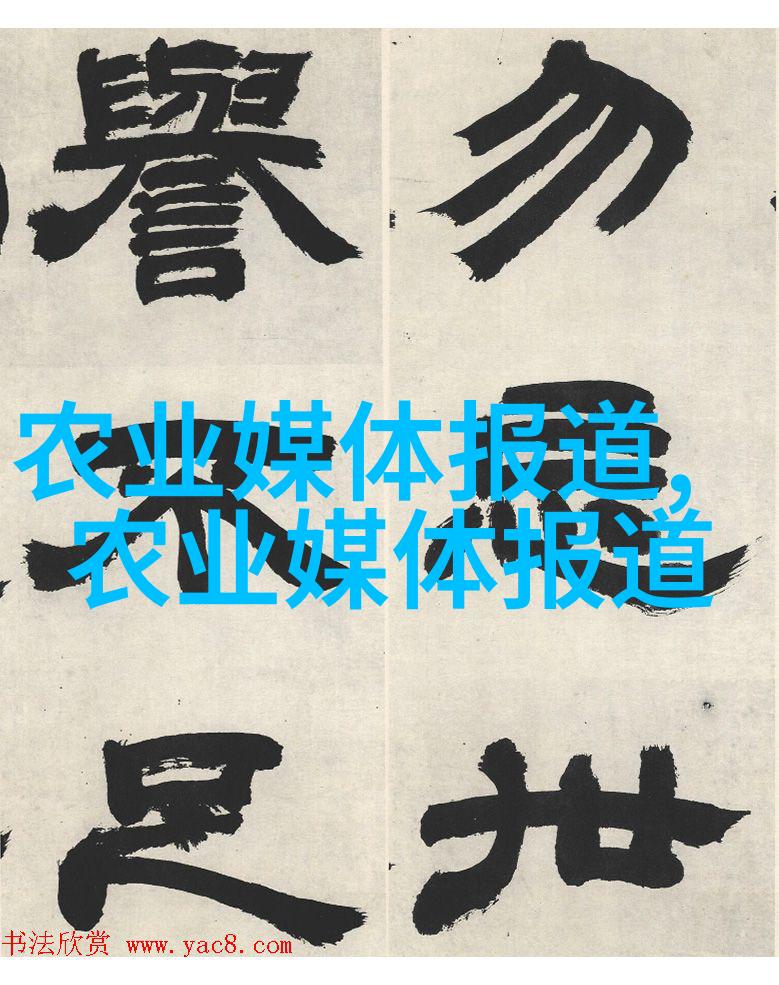 勿世
譽不足
农业媒体报道,
农业媒体报道
书法欣赏 www.yac8.com